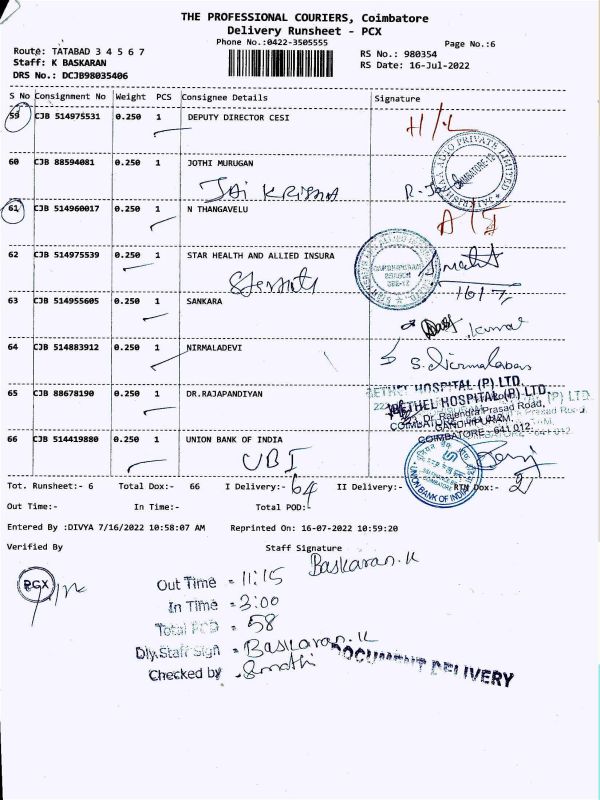 THE PROFESSIONAL COURIERS, Coimbatore
Delivery Runsheet - PCX
Phone No.:0422-3505555
Page No.:6
Route: TATABAD 3 4 5 6 7
RS No.: 980354
Staff: K BASKARAN
RS Date: 16-Jul-2022
DRS No.: DCJB98035406
S No Consignment No Weight PCS Consignee Details Signature
59 CJB 514975531 0.250 1 DEPUTY DIRECTOR CESI
60 CJB 88594081 0.250 1 JOTHI MURUGAN
JAI KRISHNA
61 CJB 514960017 0.250 1 N THANGAVELU
62 CJB 514975539 0.250 1 STAR HEALTH AND ALLIED INSURA
16/7
63 CJB 514955605 0.250 1 SANKARA
Kumar
64 CJB 514883912 0.250 1 NIRMALADEVI
S. Nirmaladevi
65 CJB 88678190 0.250 1 DR.RAJAPANDIYAN
BETHEL HOSPITAL (P) LTD.
BETHEL HOSPITAL (P) LTD.
Dr. Rajendra Prasad Road,
GANDHIPURAM,
COIMBATORE - 641 012
66 CJB 514419880 0.250 1 UNION BANK OF INDIA
UBI
UNION BANK OF INDIA
Tot. Runsheet:- 6 Total Dox:- 66 I Delivery:- 64 II Delivery:- RTN Dox:- 2
Out Time:- In Time:- Total POD:-
Entered By :DIVYA 7/16/2022 10:58:07 AM Reprinted On: 16-07-2022 10:59:20
Verified By Staff Signature
Baskaran.K
PCX
Out Time = 11:15
In Time = 3:00
Total POD = 58
Dly.Staff Sign = Baskaran.K
Checked by
DOCUMENT DELIVERY